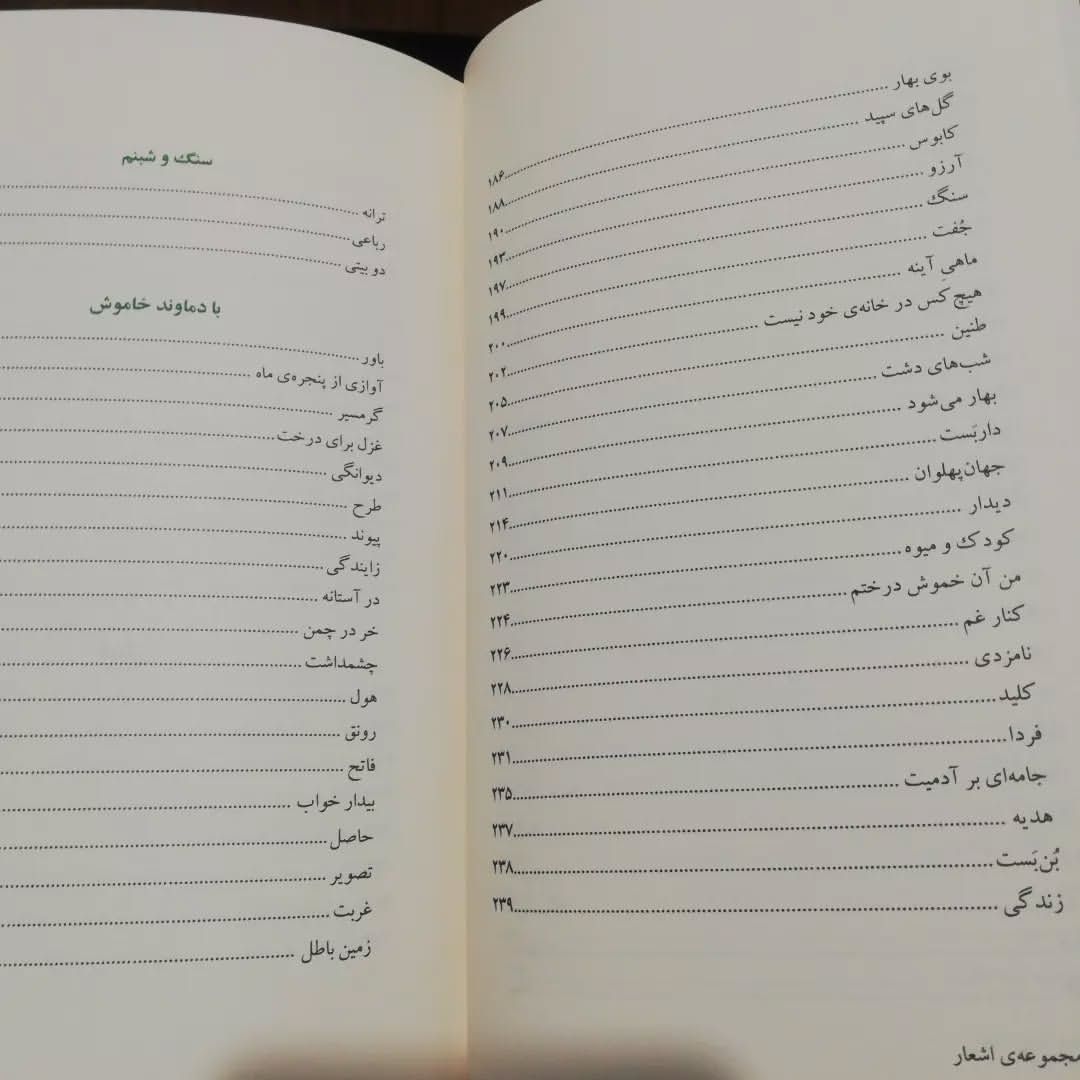 بوی بهار ........ ۱۸۶
گل‌های سپید ........ ۱۸۸
کابوس ........ ۱۹۰
آرزو ........ ۱۹۳
سنگ ........ ۱۹۷
جُفت ........ ۱۹۹
ماهیِ آینه ........ ۲۰۰
هیچ کس در خانه‌ی خود نیست ........ ۲۰۲
طنین ........ ۲۰۵
شب‌های دشت ........ ۲۰۷
بهار می‌شود ........ ۲۰۹
داربَست ........ ۲۱۱
جهان‌پهلوان ........ ۲۱۴
دیدار ........ ۲۲۰
کودک و میوه ........ ۲۲۳
من آن خموش درختم ........ ۲۲۴
کنار غم ........ ۲۲۶
نامزدی ........ ۲۲۸
کلید ........ ۲۳۰
فردا ........ ۲۳۱
جامه‌ای بر آدمیت ........ ۲۳۵
هدیه ........ ۲۳۷
بُن‌بَست ........ ۲۳۸
زندگی ........ ۲۳۹
مجموعه‌ی اشعار
سنگ و شبنم
ترانه ........
رباعی ........
دو بیتی ........
با دماوند خاموش
باور ........
آوازی از پنجره‌ی ماه ........
گرمسیر ........
غزل برای درخت ........
دیوانگی ........
طرح ........
پیوند ........
زایندگی ........
در آستانه ........
خر در چمن ........
چشمداشت ........
هول ........
رونق ........
فاتح ........
بیدار خواب ........
حاصل ........
تصویر ........
غربت ........
زمین باطل ........